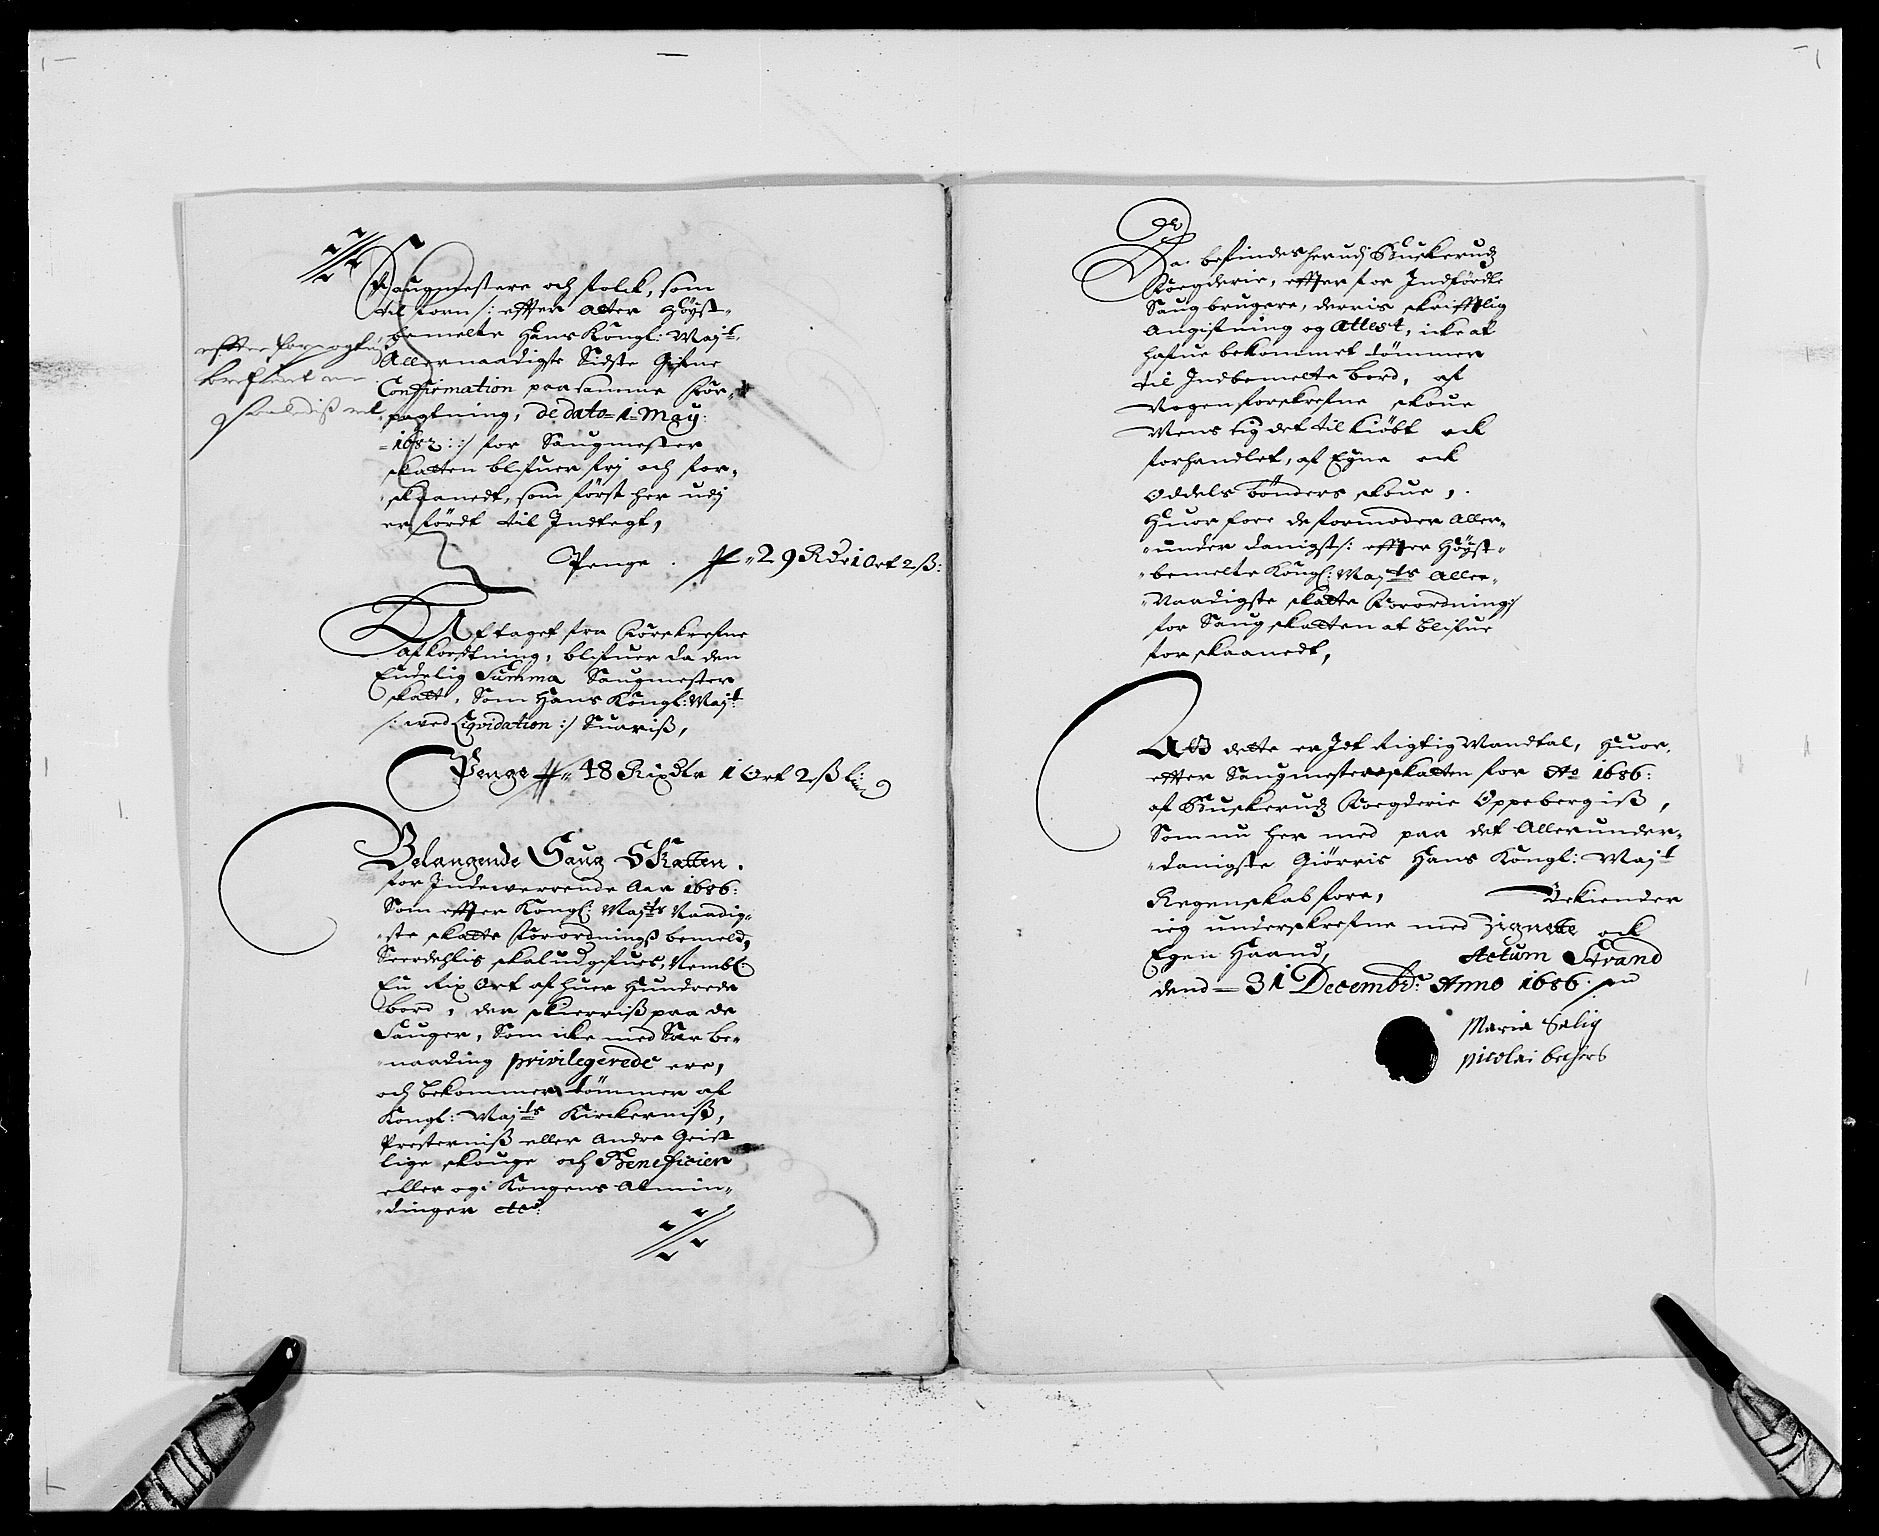 Saugmestere och folck, som
til torn /: effter aller Høyst-
bemelte Hans Kongl: Mayt:
Allernaadigste Sidste Gifne
Confirmation paa samme For-
pagtning, de dato 1 May:
1682: :/ for Saugmester
skatten blifuer frj och for-
skaanedt, som først her udj
er ført til Indtegt,
Penge . 29 Rdr 1 Ort 2 ß:
Aftaget fra Forskrefne
afkortning, blifuer da den
Endelig Summa Saugmester
skatt, Som Hans Kongl: Mayt:
/: ved Liqvidation :/ Suariß,
Penge 48 Rixdlr 1 Ort 2 ß
Belangende Saug Skatten.
for Indewerrende Aar 1686:
Som effter Kongl: Mayts Naadig-
ste skatte Forordningß bemeld,
Seerdehlis skal udgifues, Nembl:
En Rix Ort af huer Hundrede
bord, der skierriß paa de
Sauger, Som icke med Sær be-
naading privilegerede ere,
och bekommer tømmer af
Kongl: Mayts Kirckerniß,
Presterniß eller Andre Geist-
lige skouge och Beneficier
eller og i Kongens Almin-
dinger etc:
Da befindes herudj Buskerudz
Foegderie, effter for Indførdte
Saugbrugere, derris skrifftlig
Angifning og Attest, icke at
hafue bekommet tømmer
til Indbemelte bord, af
Nogen forskrefne skoue
Mens sig det til kiøbt och
forhandlet, af Egne och
Oddels bønders skoue,
Huorfore de formoder Aller-
under danigst /: effter Høyst-
bemelte Kongl: Mayts Aller-
Naadigste skatte Forordning :/
for Saug skatten at blifue
forskaanedt,
At dette er Jdt Rigtig Mandtal, Huor-
effter Saugmesterskatten for Ao 1686:
af Buskerudz Foegderie Oppebergiß,
Som nu her med paa det Allerunder-
danigste Giørris Hans Kongl: Mayt
Regenskab fore, Bekiender
ieg underskrefne med Zignette och
Egen Haand, Actum Strand
dend 31 Decembr: Anno 1686.
Maria Salig
Nicolai bechers